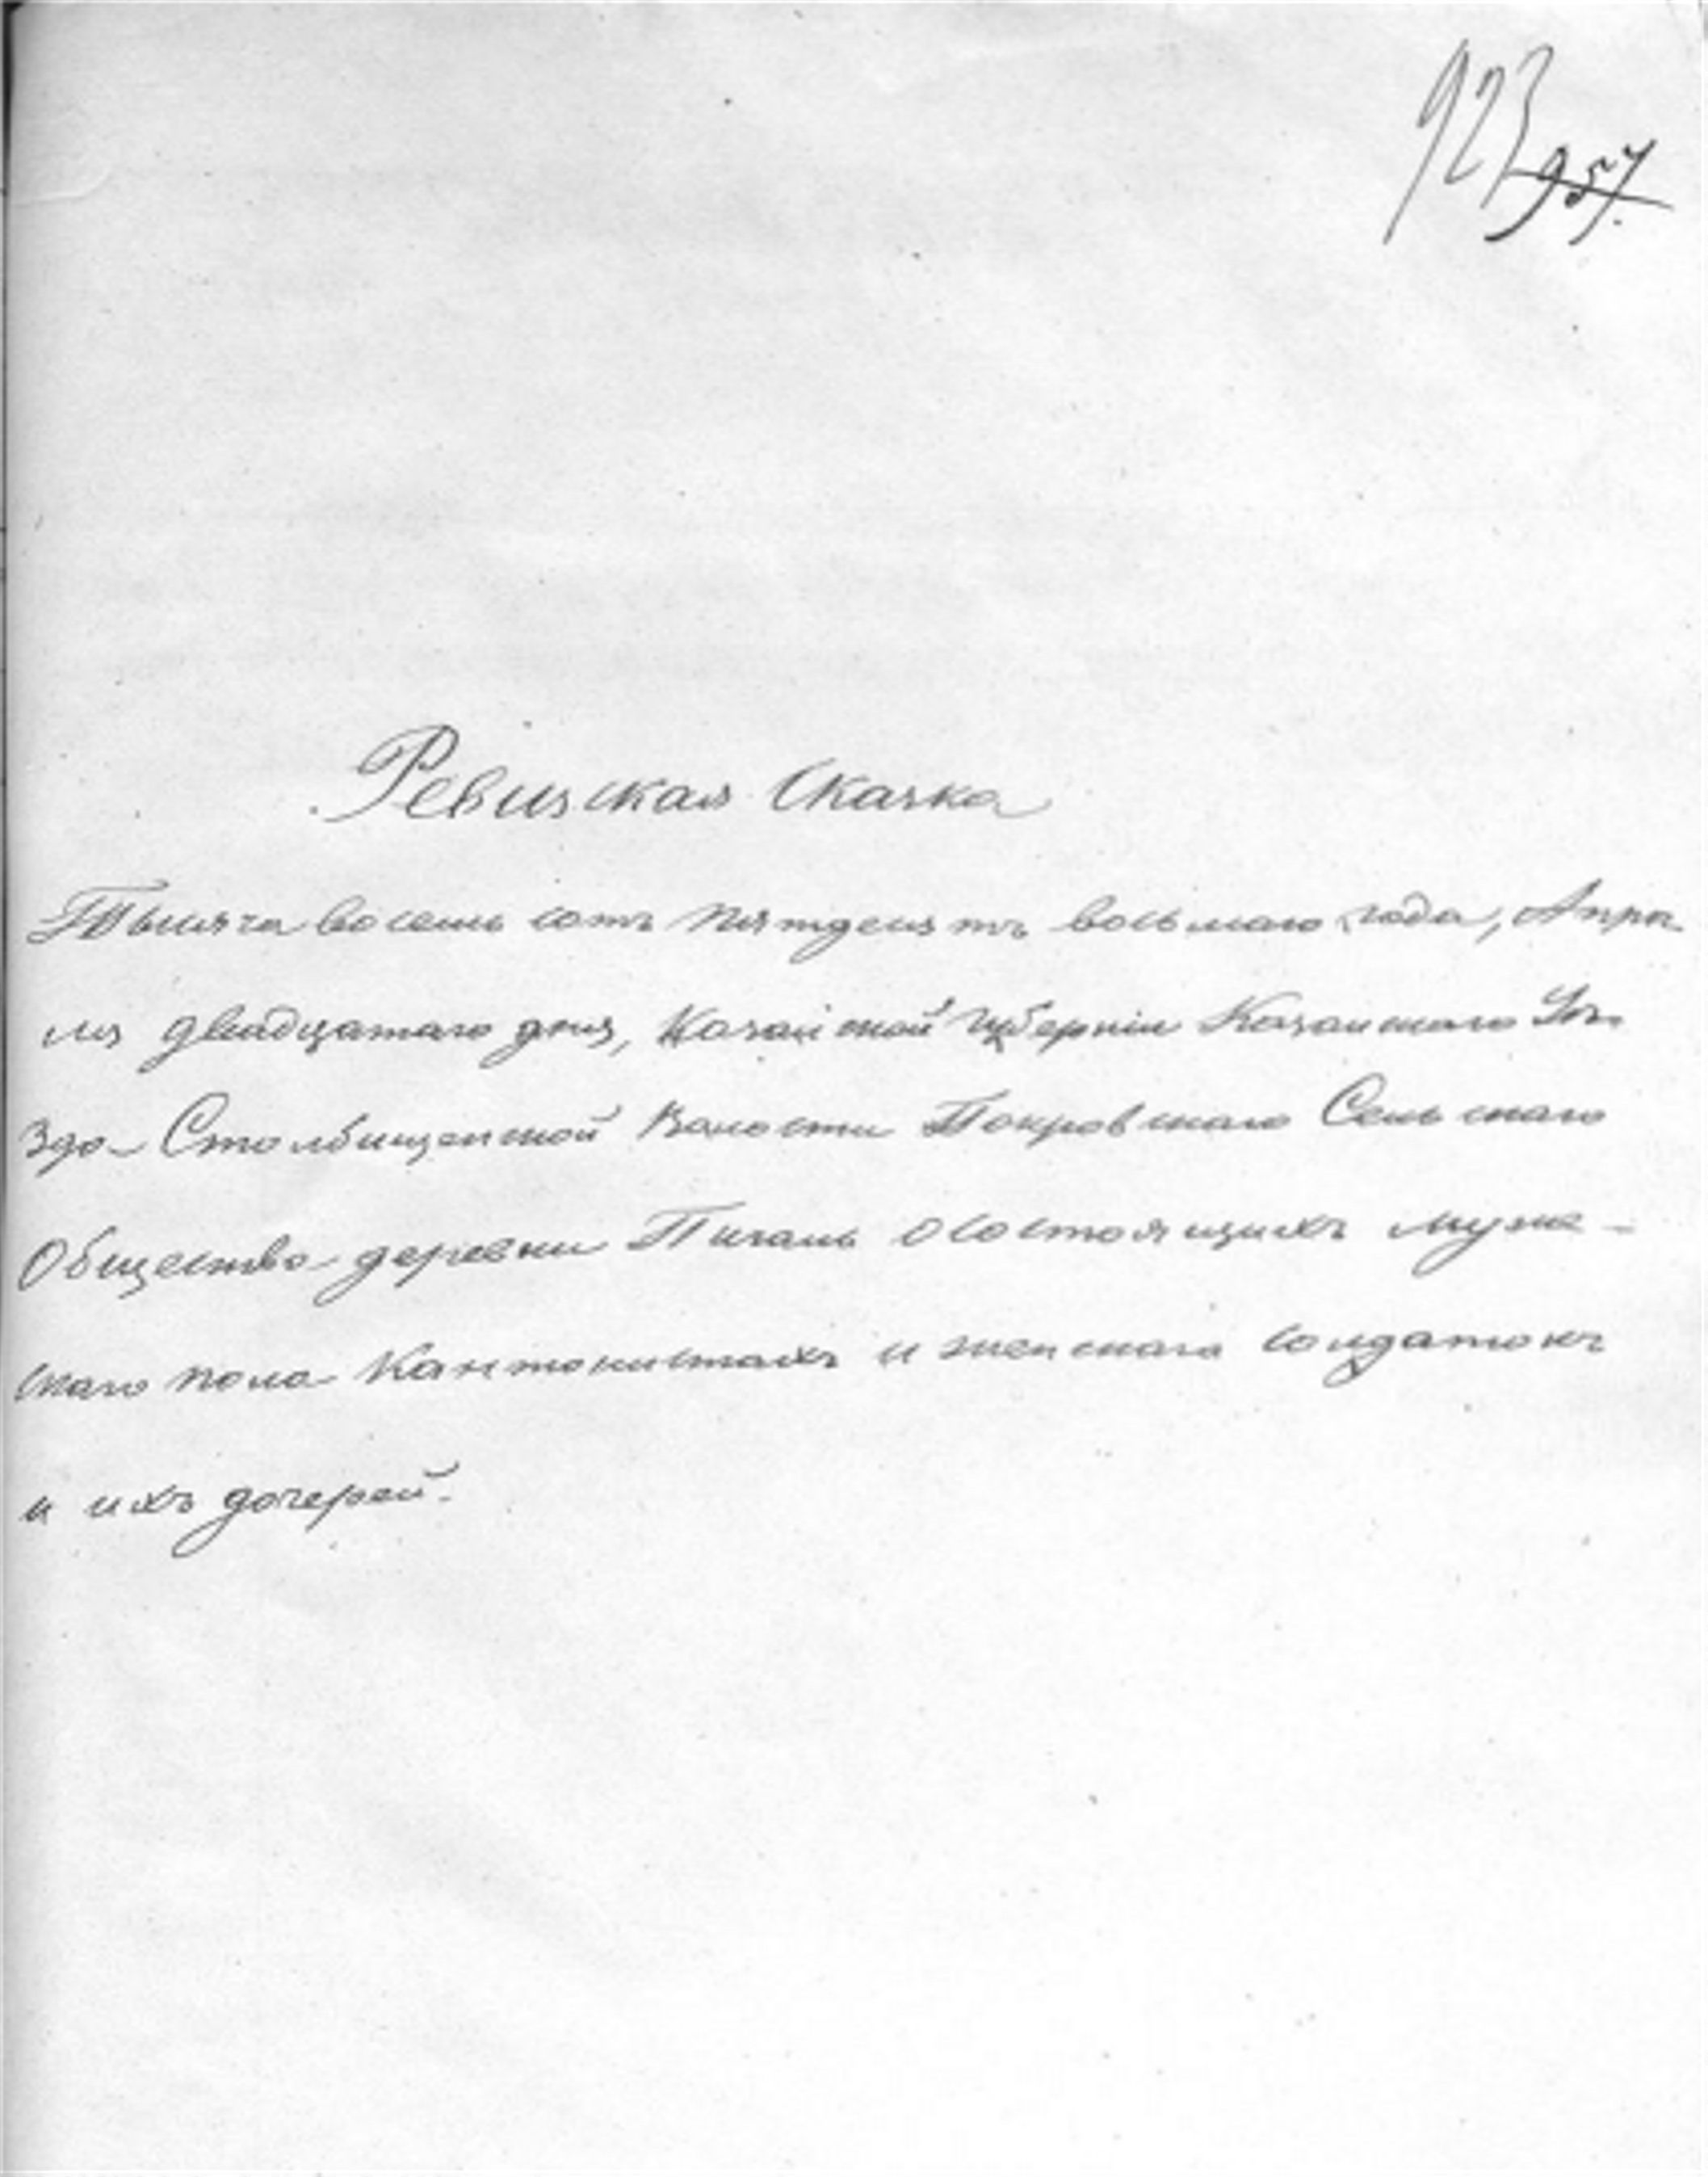 923 957.
Ревизская Сказка
Тысяча восемь сотъ пятдесятъ восьмаго года, Апрѣ-
ля двадцатаго дня, Казанской Губерніи Казанскаго Уѣ-
зда Столбищенской Волости Покровскаго Сельскаго
Общества деревни Пичань о состоящихъ муже-
скаго пола Кантонистахъ и женскаго солдатокъ
и ихъ дочерей.